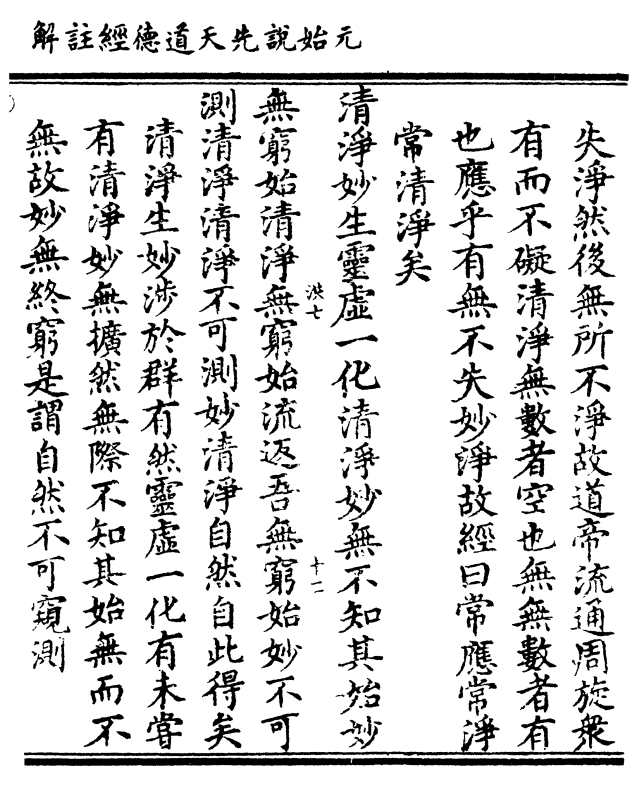 元始說先天道德經註解
失淨然後無所不淨故道帝流通周旋衆
有而不礙清淨無數者空也無無數者有
也應乎有無不失妙淨故經曰常應常淨
常清淨矣
清淨妙生靈虛一化清淨妙無不知其始妙
洪七
十二
無窮始清淨無窮始流返吾無窮始妙不可
測清淨清淨不可測妙清淨自然自此得矣
清淨生妙涉於群有然靈虛一化有未嘗
有清淨妙無擴然無際不知其始無而不
無故妙無終窮是謂自然不可窺測